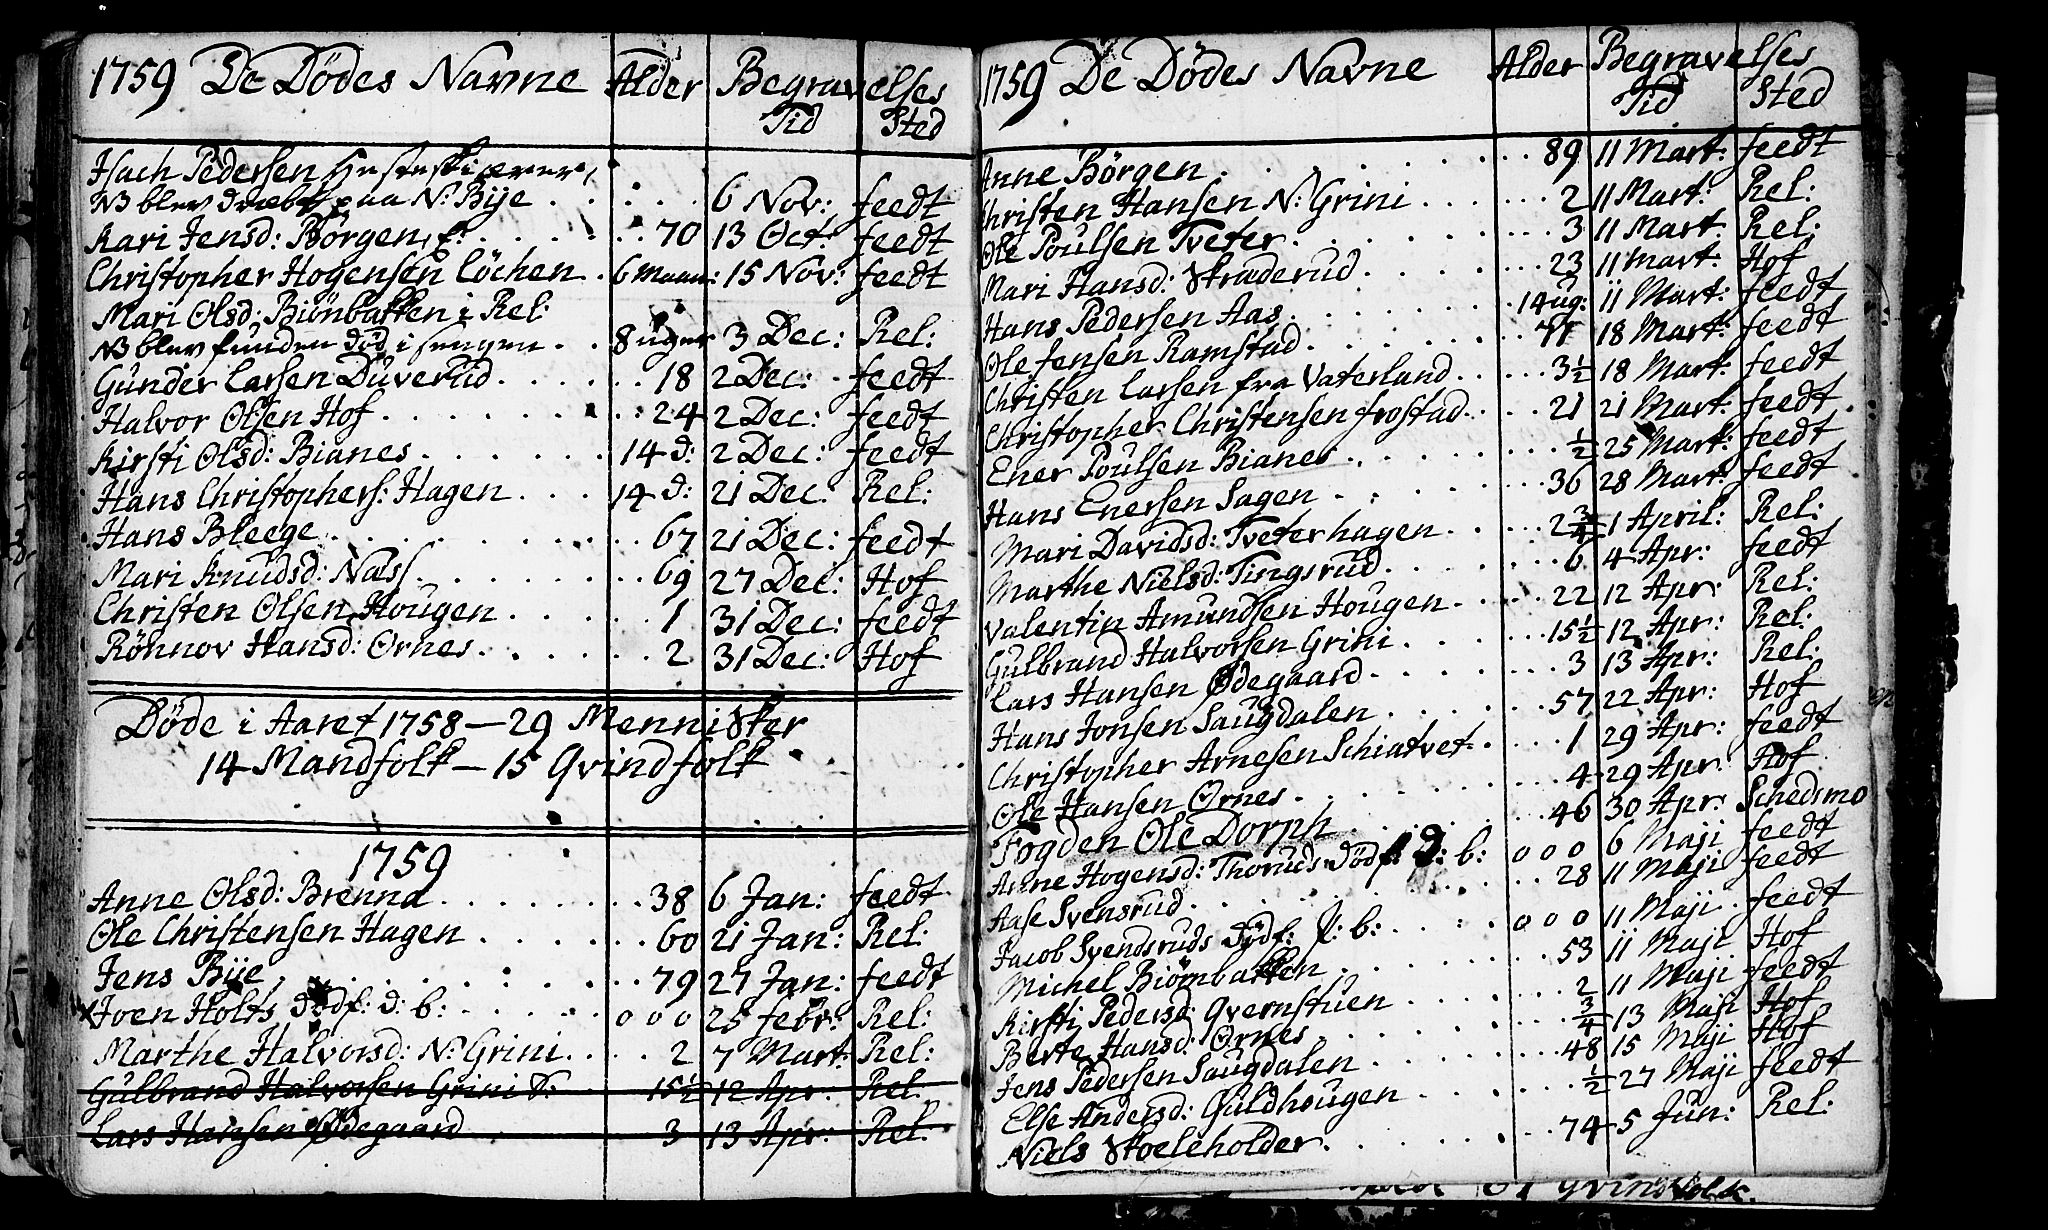 1759 De Dödes Navne Alder Begravelses
Tid Sted
Isach Pedersen Hesteskiærer,
NB blev dræbt paa N: Bÿe . . . . . . 6 Nov: feedt
Kari Jensd: Börgen, E: . . . . . . 70 13 Oct: feedt
Christopher Hogensen Löchen . 6 Maan: 15 Nov: feedt
Mari Olsd: Biönbakken i Rel:
NB blev funden död i sengen . . 8 uger 3 Dec: Rel:
Gunder Larsen Duverud . . . . . . 18 2 Dec: feedt
Halvor Olsen Hof . . . . . . . . 24 2 Dec: feedt
Kirsti Olsd: Bianes . . . . . . . 14 d: 2 Dec: feedt
Hans Christophers: Hagen . . . 14 d: 21 Dec: Rel:
Hans Bleege . . . . . . . . . 67 21 Dec: feedt
Mari Knudsd: Næss . . . . . . . 69 27 Dec: Hof
Christen Olsen Hougen . . . . . 1 31 Dec: feedt
Rönnov Hansd: Ornes . . . . . . 2 31 Dec: Hof
Döde i Aaret 1758 — 29 Mennisker
14 Mandfolk — 15 Qvindfolk
1759
Anne Olsd: Brenna . . . . . . . . 38 6 Jan: feedt
Ole Christensen Hagen . . . . . . 60 21 Jan: Rel:
Jens Bÿe . . . . . . . . . 79 27 Jan: feedt
Joen Holts dödf: d: b: . . . . . o o o 25 febr: Rel:
Marthe Halvorsd: N: Grini . . . . 2 7 Mart: Rel:
Gulbrand Halvorsen Grini 15½ 12 Apr: Rel:
Lars Hansen Ødegaard 3 13 Apr: Rel:
1759 De Dödes Navne Alder Begravelses
Tid Sted
Anne Börgen . . . . . . . . 89 11 Mart: feedt
Christen Hansen N: Grini . . . . . . 2 11 Mart: Rel:
Ole Poulsen Tveter . . . . . . . . 3 11 Mart: Rel:
Mari Hansd: Skraderud . . . . . . . 23 11 Mart: Hof
Hans Pedersen Aas . . . . . . . . 14 ug: 11 Mart: feedt
Ole Jensen Ramstad . . . . . . . . 77 18 Mart: feedt
Christen Larsen fra Vaterland . . . . . 3½ 18 Mart: feedt
Christopher Christensen frostad . . . . 21 21 Mart: feedt
Ener Poulsen Bianes . . . . . . . . ½ 25 Mart: feedt
Hans Enersen Sagen . . . . . . . . 36 28 Mart: feedt
Mari Davidsd: Tveterhagen . . . . . 2¾ 1 April: Rel:
Marthe Nielsd: Tingsrud . . . . . . . 6 4 Apr: feedt
Valentin Amundsen Hougen . . . . . 22 12 Apr: Rel:
Gulbrand Halvorsen Grini . . . . . . 15½ 12 Apr: Rel:
Lars Hansen Ødegaard . . . . . . . 3 13 Apr: Rel:
Hans Jonsen Saugdalen . . . . . . . 57 22 Apr: Hof
Christopher Arnesen Schiatvet . . . . . 1 29 Apr: feedt
Ole Hansen Ornes . . . . . . . . . 4 29 Apr: Hof
Fogden Ole Dorph . . . . . . . . 46 30 Apr: Schedsmo
Anne Hogensd: Thoruds Dödf: d: b: o o o 6 Maji feedt
Aase Svensrud . . . . . . . . . 28 11 Maji feedt
Jacob Svendsruds dödf: p: b: . . . . o o o 11 Maji feedt
Michel Biörnbakken . . . . . . . . 53 11 Maji Hof
Kirsti Pedersd: Qvernstuen . . . . . 2 11 Maji feedt
Berte Hansd: Ornes . . . . . . . . ¾ 13 Maji Hof
Jens Pedersen Saugdalen . . . . . . . 48 15 Maji Hof
Else Andersd: Guldhougen . . . . . . ½ 27 Maji feedt
Niels Skoeleholder . . . . . . . . 74 5 Jun: Rel:
Qvindfolk.